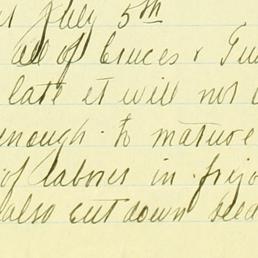 July 5th
all of Cruces &
late it will not
enough to mature
of labores in
also cut down seed